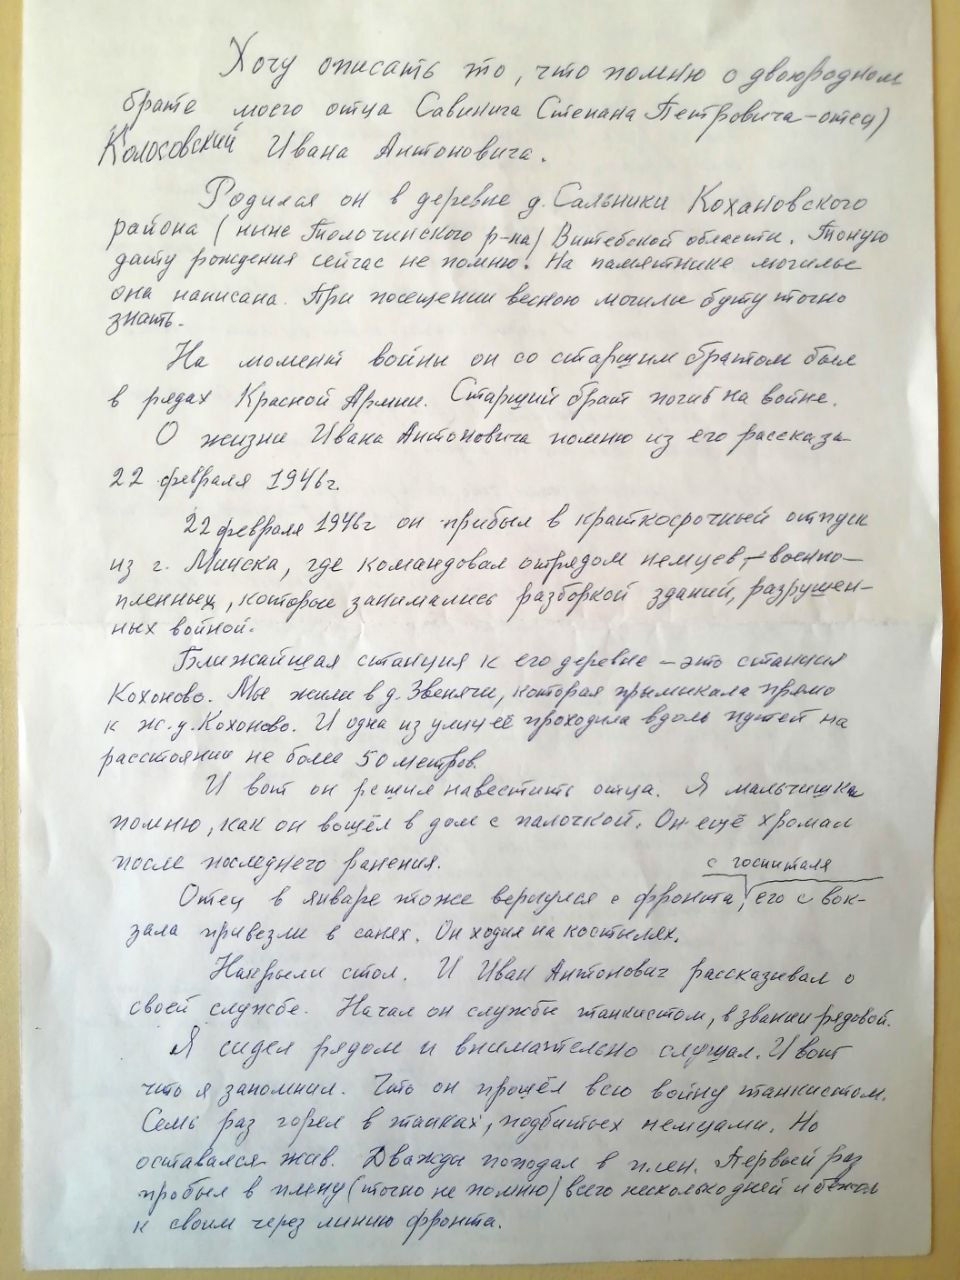 Хочу описать то, что помню о двоюродном
брате моего отца Савинича Степана Петровича-отец)
Колосовский Ивана Антоновича.
Родился он в деревне д. Сальники Кохановского
района (ныне Толочинского р-на) Витебской области. Точную
дату рождения сейчас не помню. На памятнике могилы
она написана. При посещении весною могилы буту точно
знать.
На момент войны он со старшим братом был
в рядах Красной Армии. Старший брат погиб на войне.
О жизни Ивана Антоновича помню из его рассказа
22 февраля 1946г.
22 февраля 1946г он прибыл в краткосрочный отпуск
из г. Минска, где командовал отрядом немцев, – военно-
пленных, которые занимались разборкой зданий, разрушен-
ных войной.
Ближайшая станция к его деревне – это станция
Кохоново. Мы жили в д. Звенячи, которая прымикала прямо
к ж.д. Кохоново. И одна из улиц её проходила вдоль путей на
расстоянии не более 50 метров.
И вот он решил навестить отца. Я мальчишка
помню, как он вошёл в дом с палочкой. Он ещё хромал
после последнего ранения.
с госпиталя
Отец в январе тоже вернулся с фронта, его с вок-
зала привезли в санях. Он ходил на костылях.
Накрыли стол. И Иван Антонович рассказывал о
своей службе. Начал он службы танкистом, в звании рядовой.
Я сидел рядом и внимательно слушал. И вот
что я запомнил. Что он прошёл всю войну танкистом.
Семь раз горел в танках, подбитых немцами. Но
оставался жив. Дважды попадал в плен. Первый раз
пробыл в плену (точно не помню) всего несколько дней и бежал
к своим через линию фронта.